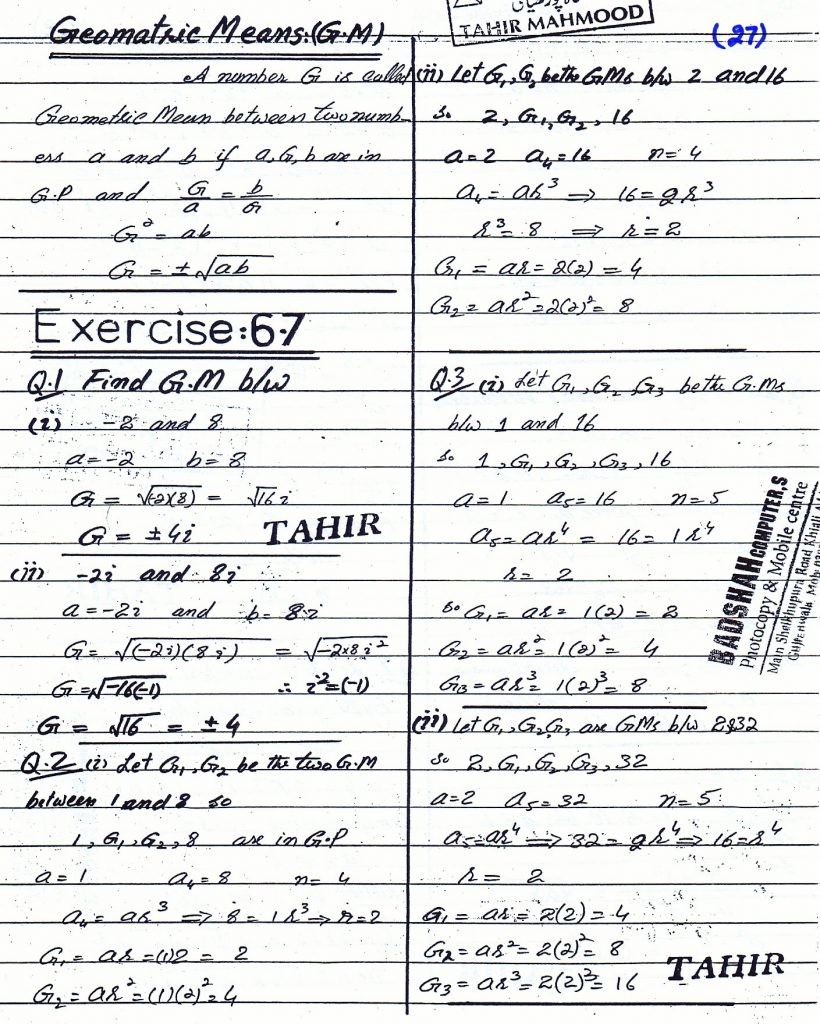 Geomatric Means:(G.M)
A number G is called
Geometric Mean between two numb-
ers a and b if a,G,b are in
G.P and G/a = b/G
G² = ab
G = ±√ab
Exercise:6.7
Q.1 Find G.M b/w
(i) -2 and 8
a=-2 b=8
G = √(-2)(8) = √16 i
G = ±4i
TAHIR
(ii) -2i and 8i
a=-2i and b=8i
G= √(-2i)(8i) = √-2x8i²
G=√-16(-1) ∴ i²=(-1)
G = √16 = ±4
Q.2 (i) Let G₁,G₂ be the two G.M
between 1 and 8 so
1,G₁,G₂,8 are in G.P
a=1 a₄=8 n=4
a₄= ar³ ⟹ 8=1r³→ r=2
G₁= ar=(1)2 = 2
G₂=ar²=(1)(2)²=4
TAHIR MAHMOOD
(27)
(ii) Let G₁,G₂ be the GMs b/w 2 and 16
so 2,G₁,G₂,16
a=2 a₄=16 n=4
a₄= ar³ ⟹ 16=2r³
r³=8 ⟹ r=2
G₁ = ar=2(2) = 4
G₂= ar²=2(2)²= 8
Q.3 (i) Let G₁,G₂,G₃ be the G.Ms
b/w 1 and 16
so 1,G₁,G₂,G₃,16
a=1 a₅=16 n=5
a₅=ar⁴ = 16= 1r⁴
r= 2
so G₁= ar= 1(2) = 2
G₂=ar²=1(2)²= 4
G₃=ar³=1(2)³=8
BADSHAH COMPUTER,S
Photocopy & Mobile centre
Main Sheikhupura Road Khiali
(ii) Let G₁,G₂,G₃ are GMs b/w 2&32
so 2,G₁,G₂,G₃,32
a=2 a₅=32 n=5
a₅=ar⁴ ⟹ 32=2r⁴⟹ 16=r⁴
r= 2
G₁= ar= 2(2)=4
G₂=ar²=2(2)²= 8
G₃=ar³=2(2)³= 16
TAHIR